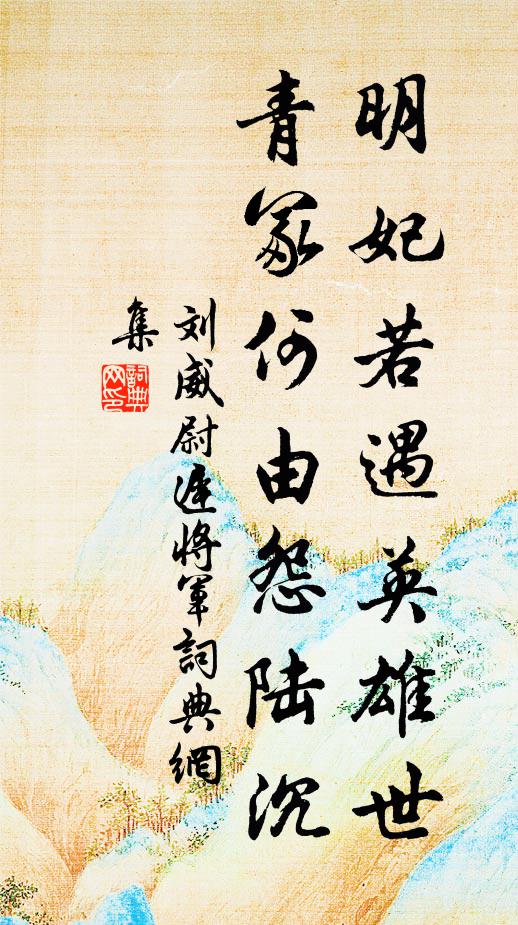 明妃若遇英雄世
青冢何由怨陆沉
刘威尉遲将军詞典網
集
詞典网印